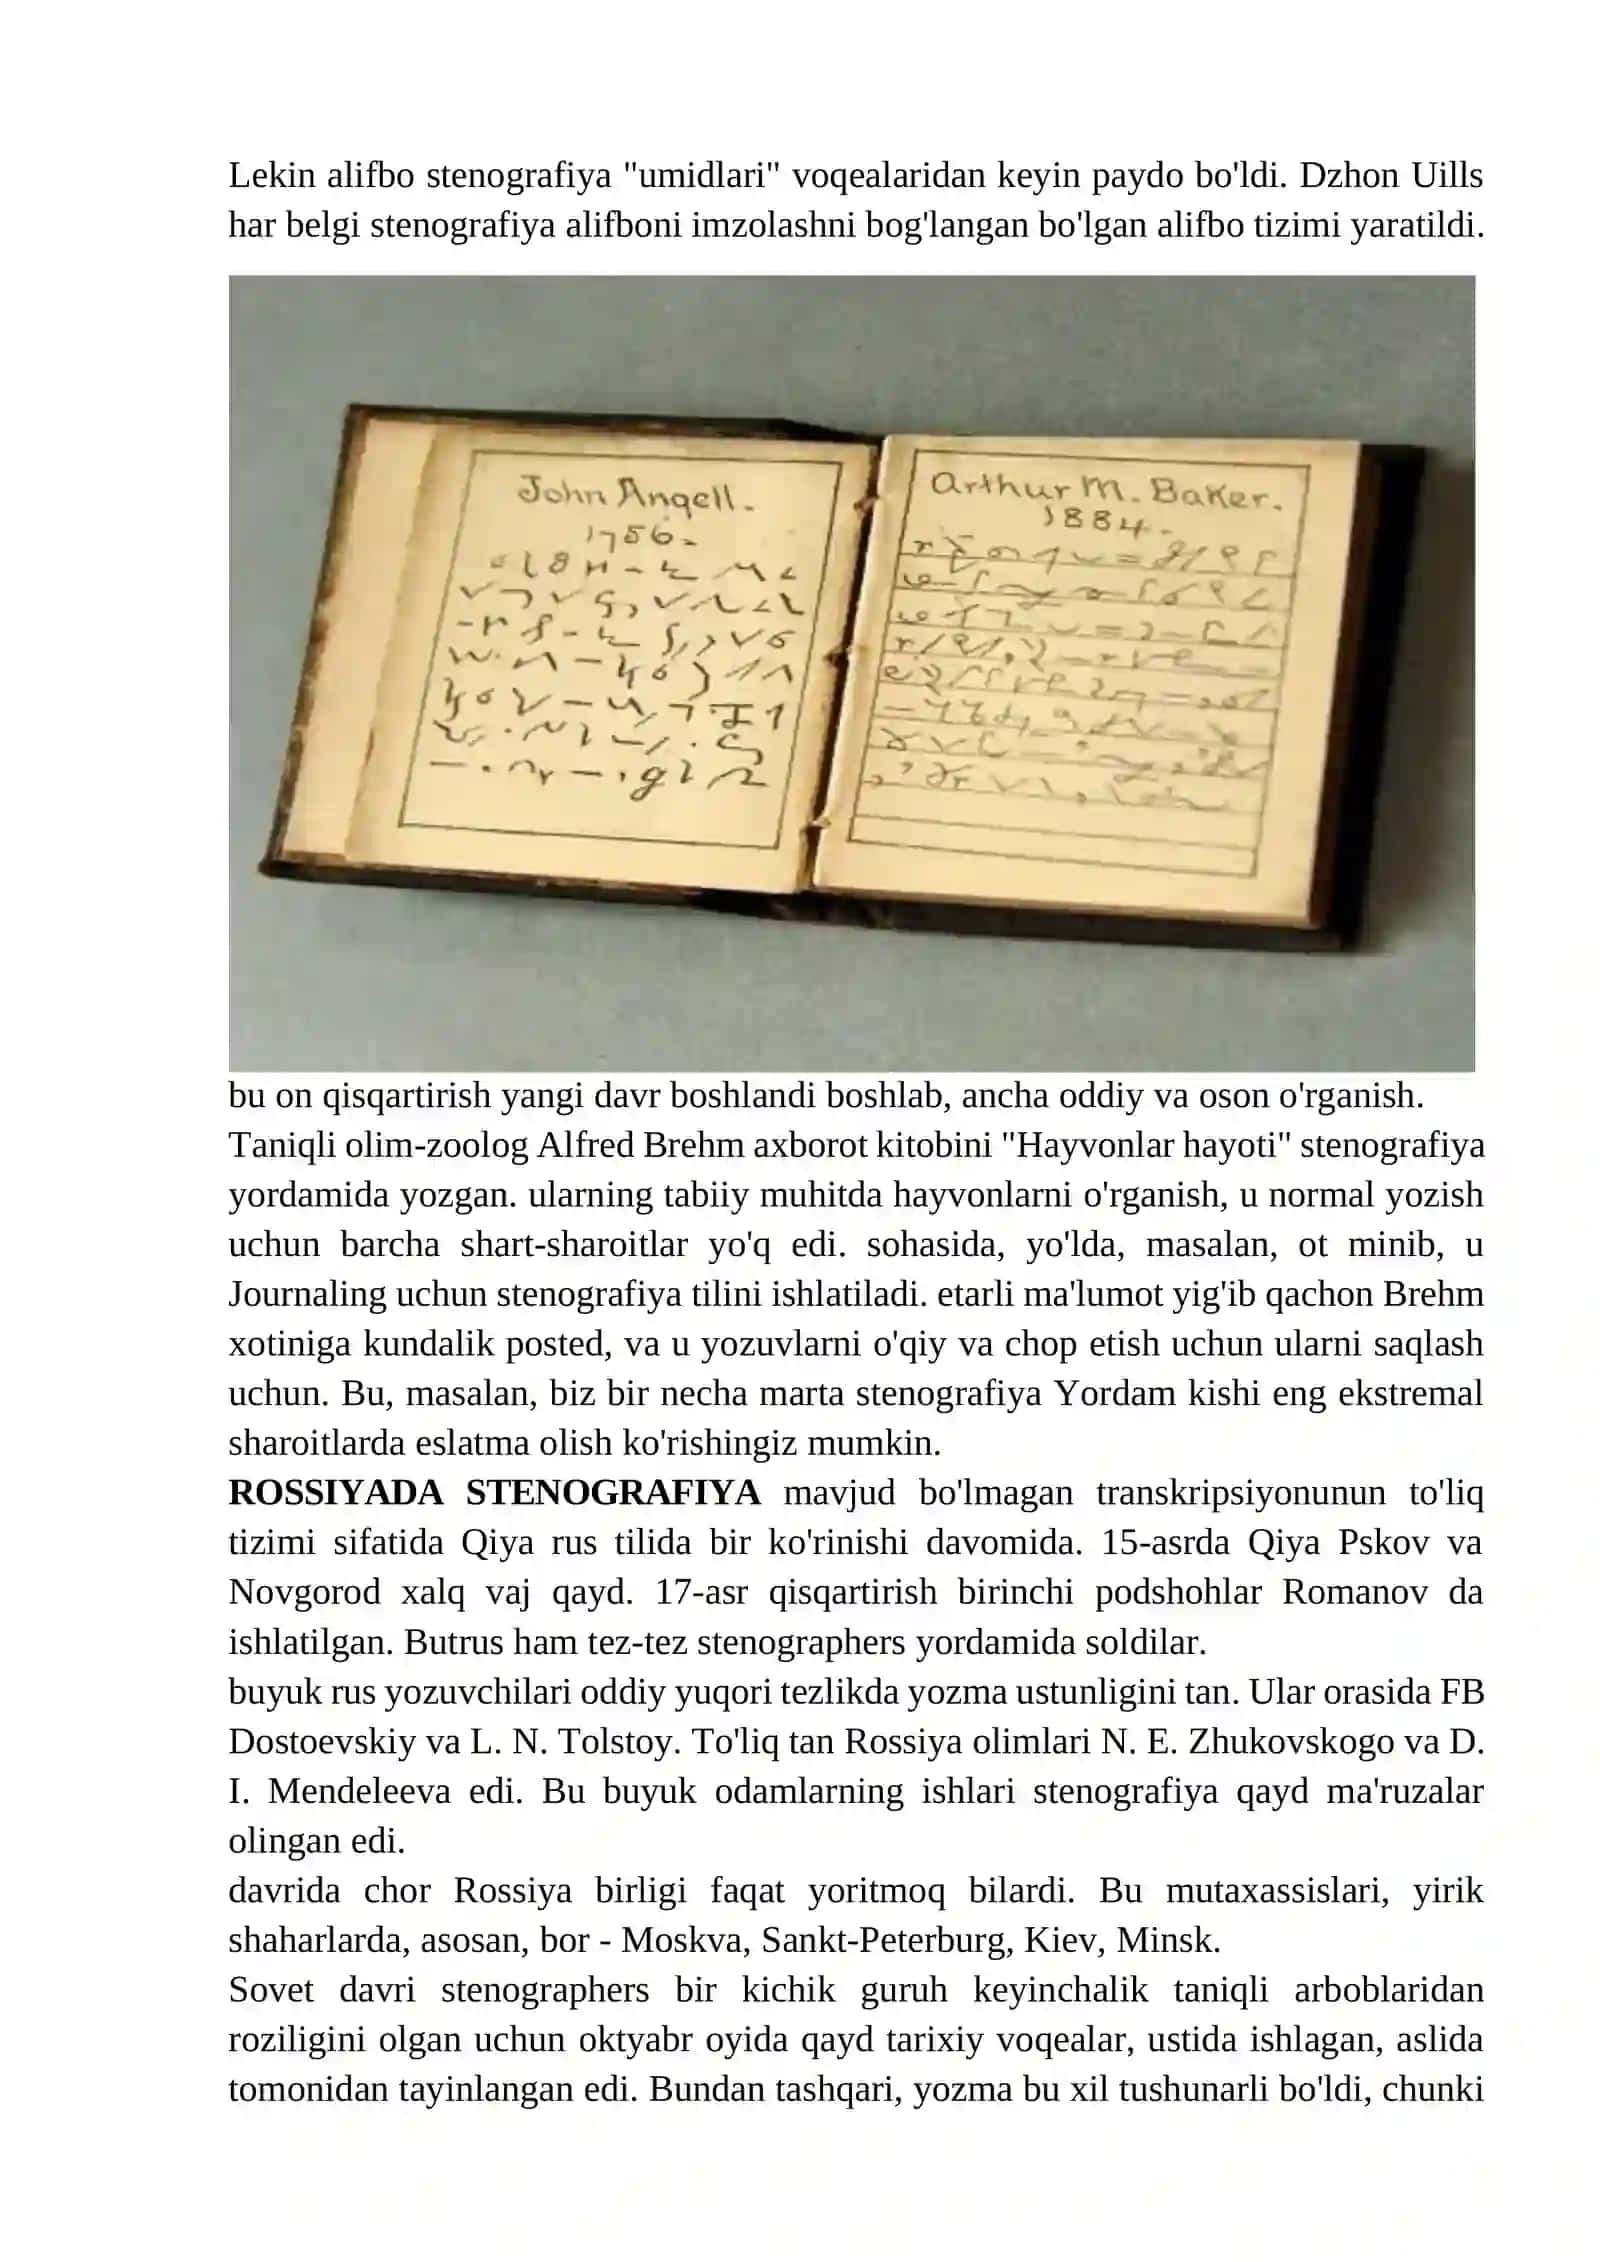 Lekin alifbo stenografiya "umidlari" voqealaridan keyin paydo bo'ldi. Dzhon Uills
har belgi stenografiya alifboni imzolashni bog'langan bo'lgan alifbo tizimi yaratildi.
John Angell.
1756.
Arthur M. Baker.
1884.
bu on qisqartirish yangi davr boshlandi boshlab, ancha oddiy va oson o'rganish.
Taniqli olim-zoolog Alfred Brehm axborot kitobini "Hayvonlar hayoti" stenografiya
yordamida yozgan. ularning tabiiy muhitda hayvonlarni o'rganish, u normal yozish
uchun barcha shart-sharoitlar yo'q edi. sohasida, yo'lda, masalan, ot minib, u
Journaling uchun stenografiya tilini ishlatiladi. etarli ma'lumot yig'ib qachon Brehm
xotiniga kundalik posted, va u yozuvlarni o'qiy va chop etish uchun ularni saqlash
uchun. Bu, masalan, biz bir necha marta stenografiya Yordam kishi eng ekstremal
sharoitlarda eslatma olish ko'rishingiz mumkin.
ROSSIYADA STENOGRAFIYA mavjud bo'lmagan transkripsiyonunun to'liq
tizimi sifatida Qiya rus tilida bir ko'rinishi davomida. 15-asrda Qiya Pskov va
Novgorod xalq vaj qayd. 17-asr qisqartirish birinchi podshohlar Romanov da
ishlatilgan. Butrus ham tez-tez stenographers yordamida soldilar.
buyuk rus yozuvchilari oddiy yuqori tezlikda yozma ustunligini tan. Ular orasida FB
Dostoevskiy va L. N. Tolstoy. To'liq tan Rossiya olimlari N. E. Zhukovskogo va D.
I. Mendeleeva edi. Bu buyuk odamlarning ishlari stenografiya qayd ma'ruzalar
olingan edi.
davrida chor Rossiya birligi faqat yoritmoq bilardi. Bu mutaxassislari, yirik
shaharlarda, asosan, bor - Moskva, Sankt-Peterburg, Kiev, Minsk.
Sovet davri stenographers bir kichik guruh keyinchalik taniqli arboblaridan
roziligini olgan uchun oktyabr oyida qayd tarixiy voqealar, ustida ishlagan, aslida
tomonidan tayinlangan edi. Bundan tashqari, yozma bu xil tushunarli bo'ldi, chunki